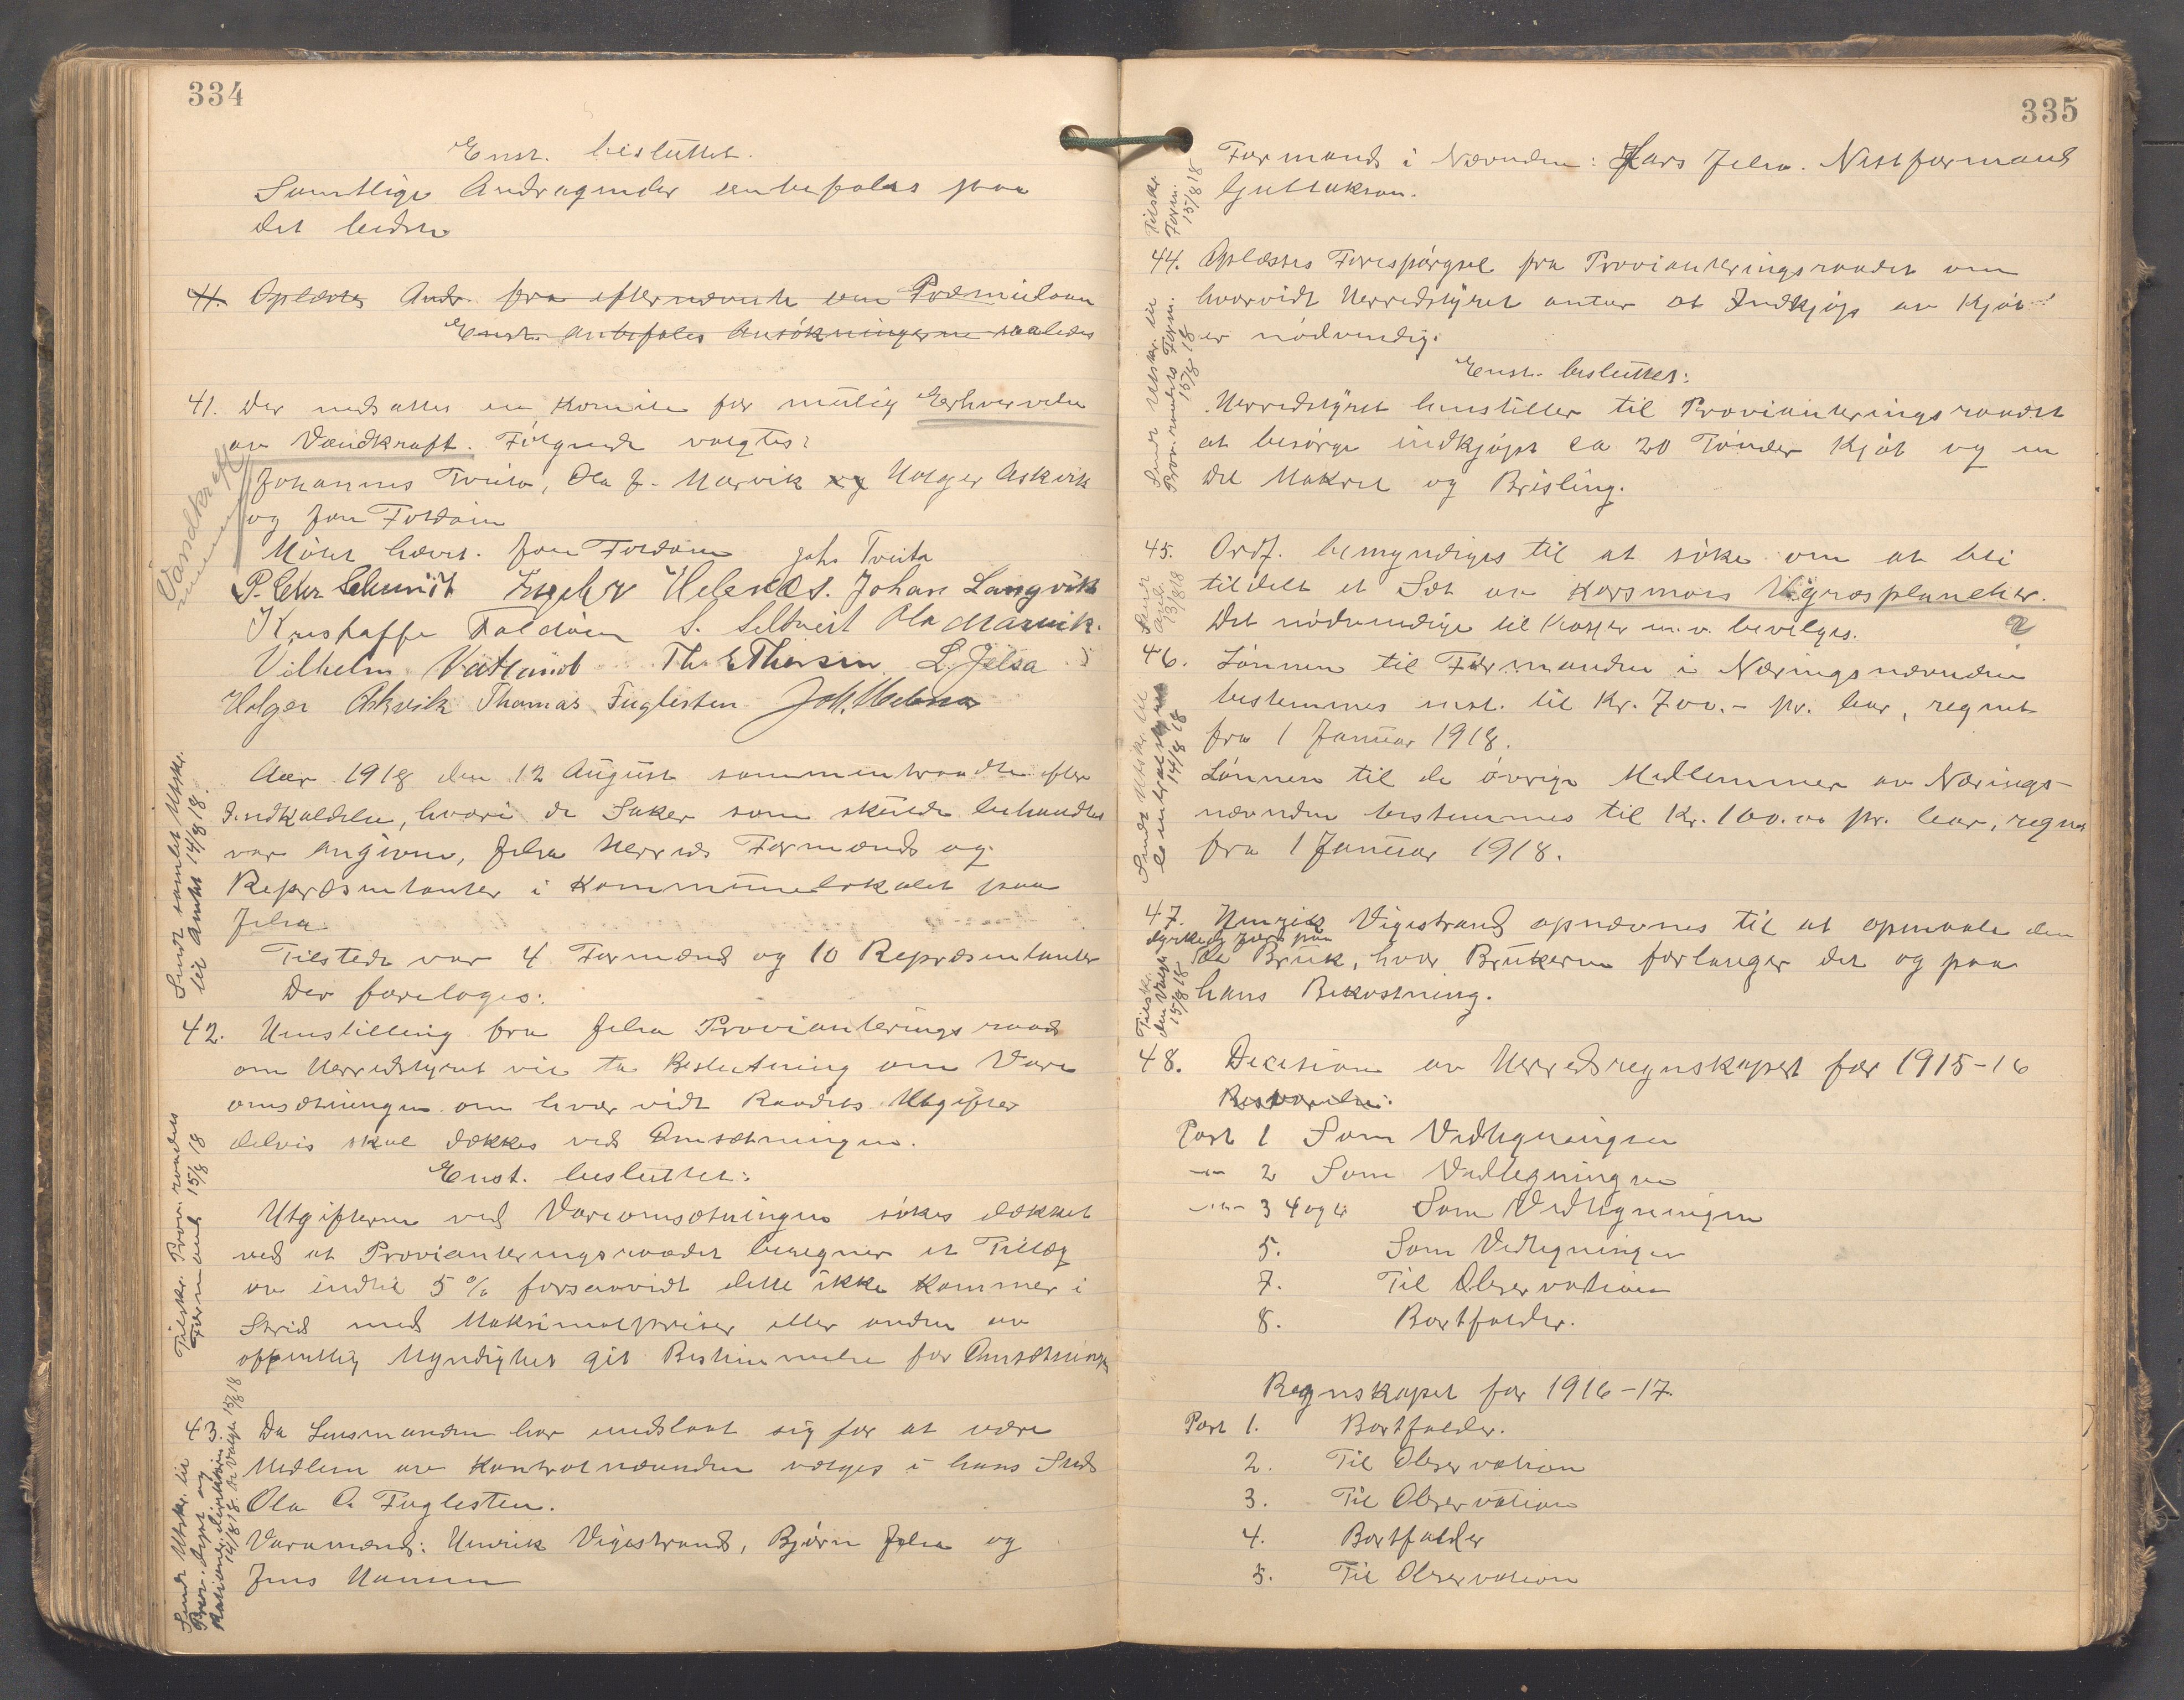 334
Enst. besluttet.
Samtlige Andragender anbefales paa
det bedste
41. Oplæstes Andr. fra efternævnte om Præmielaan
Enst. anbefales Ansökningerne saaledes
41. Der nedsattes en Komite for mulig Erhvervelse
av Vandkraft. Fölgende valgtes:
Johannes Tveita, Ola J. Marvik og Holger Askvik
og Jon Foldøin
Vandkraft
Mötet hævet. Jon Foldøin Johs Tveita
P. Chr Schmidt Helenæs. Johan Langvik
Kristoffer Foldøen S. Seltveit Ola Marvik.
Vilhelm Vatland Th. E Thorsen L. Jelsa
Holger Askvik Thomas Fuglesten
Sendt samlet Utskr.
til Amtet 14/8 18.
Aar 1918 den 12 August sammentraadte efter
Indkaldelse, hvori de Saker som skulde behandles
var angivne, Jelsa Herreds Formænd og
Repræsentanter i Kommunelokalet paa
Jelsa.
Tilstede var 4 Formænd og 10 Repræsentanter
Der foretoges:
42. Henstilling fra Jelsa Provianteringsraad
om Herredstyret vil ta Beslutning om Vare
omsætningen om hvorvidt Raadets Utgifter
delvis skal dækkes ved Omsætningen.
Enst. besluttet:
Tilskr. Provi. raadets
Formand 15/8 18
Utgifterne ved Vareomsætningen sökes dækket
ved at Provianteringsraadet beregner et Tillæg
av indtil 5 % forsaavidt dette ikke kommer i
Strid med Maksimalpriser eller anden av
offentlig Myndighet git Bestemmelse for Omsætningen
43. Da Lensmanden har undslaat sig for at være
Medlem av Kontrolnævnden vælges i hans Sted
Ola O. Fuglesten.
Varamænd: Henrik Vigestrand, Björn Jelsa og
Jens Hansen
Sendt Utskr. til
Prov. Dept og
Rationer. direktören
14/8 18. de valgte 15/8 18
335
Formand i Nævnden: Lars Jelsa. Nestformand
Guttakson.
Tilskr.
Form.
15/8 18
44. Oplæstes Forespörgsel fra Provianteringsraadet om
hvorvidt Herredstyret antar at Indkjöp av Kjöt
er nödvendig.
Enst. besluttet:
Herredstyret henstiller til Provianteringsraadet
at besörge indkjöpt ca 20 Tönder Kjöt og en
Del Makrel og Brisling.
Sendt Utskr. til
Prov. raadets Form.
15/8 18
45. Ordf. bemyndiges til at söke om at bli
tildelt et Sæt av Korsmos Ugræsplancher.
Det nödvendige til Kasser m.v. bevilges.
2
Sendt
13/8 18
46. Lönnen til Formanden i Næringsnævnden
bestemmes enst. til Kr. 700.- pr. Aar, regnet
fra 1 Januar 1918.
Lönnen til de övrige Medlemmer av Nærings-
nævnden bestemmes til Kr. 100.00 pr. Aar, regnet
fra 1 Januar 1918.
Sendt Utskr. til
14/8 18
47. Henrik Vigestrand opnævnes til at opmaale den
dyrkede Jord paa
de Bruk, hvor Brukerne forlanger det og paa
hans Bekostning.
Tilskr.
den Valgte
15/8 18
48. Decision av Herredsregnskapet for 1915-16
Besvarelse:
Post 1 Som Vedtegningen
-"- 2 Som Vedtegningen
-"- 3 4 og 6 Som Vedtegningen
5. Som Vedtegningen
7. Til Observation
8. Bortfalder.
Regnskapet for 1916-17.
Post 1. Bortfalder.
2. Til Observation
3. Til Observation
4. Bortfalder
5. Til Observation